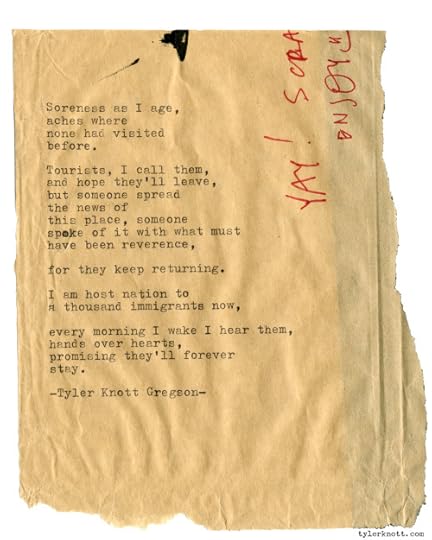 Soreness as I age,
aches where
none had visited
before.
Tourists, I call them,
and hope they'll leave,
but someone spread
the news of
this place, someone
spoke of it with what must
have been reverence,
for they keep returning.
I am host nation to
a thousand immigrants now,
every morning I wake I hear them,
hands over hearts,
promising they'll forever
stay.
-Tyler Knott Gregson-
YAY! SCRA
tylerknott.com